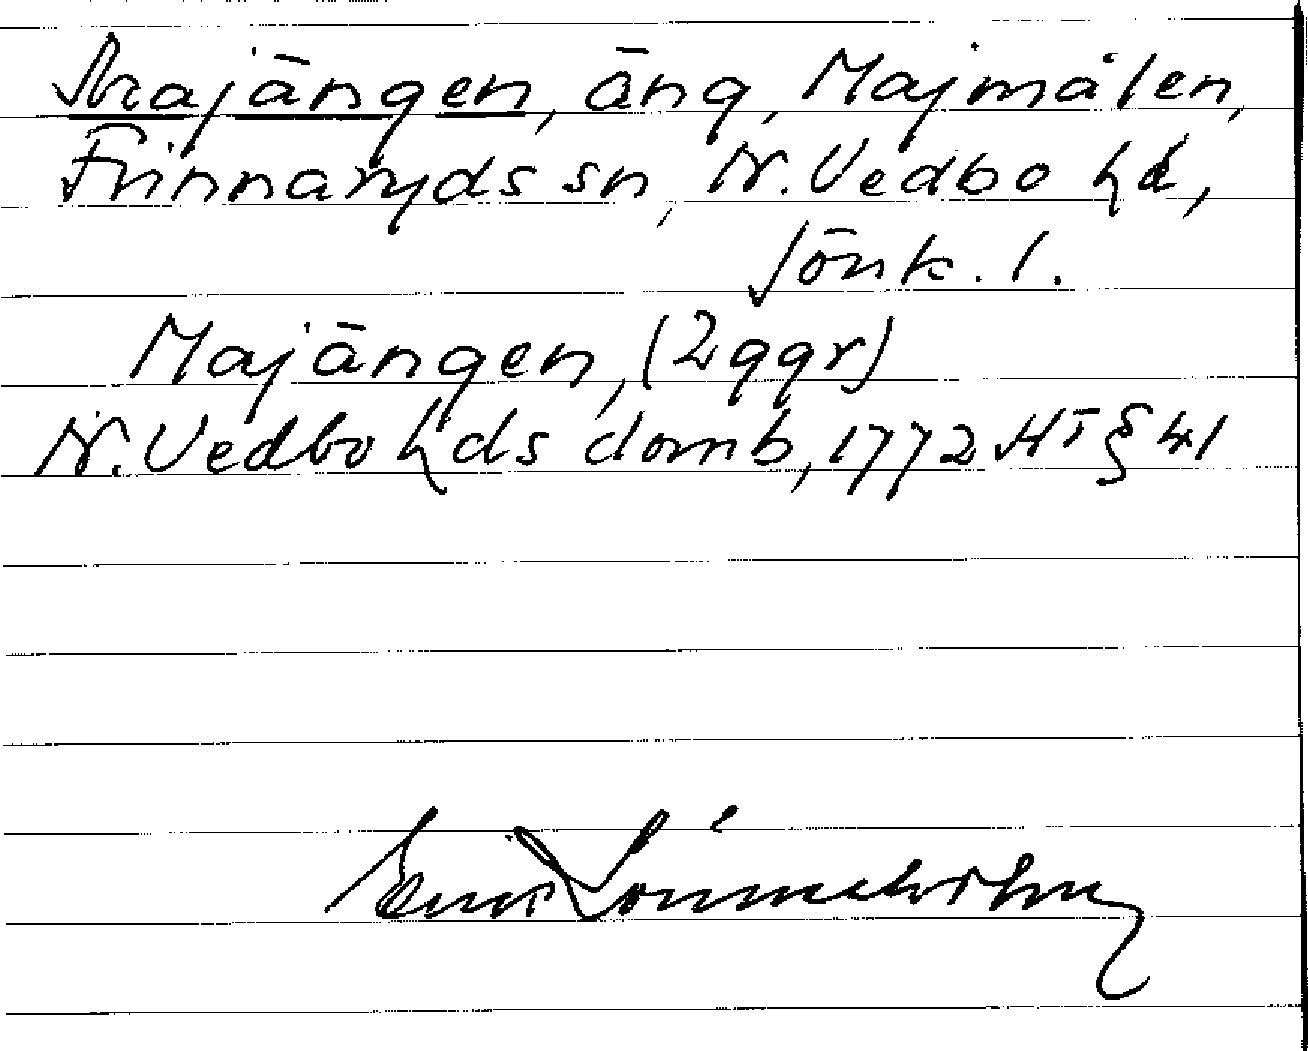 Majängen, äng, Majmålen,
Frinnaryds sn, N. Vedbo hd,
Jönk. l.
Majängen, (2 ggr)
N. Vedbo hds domb, 1772 HT § 41